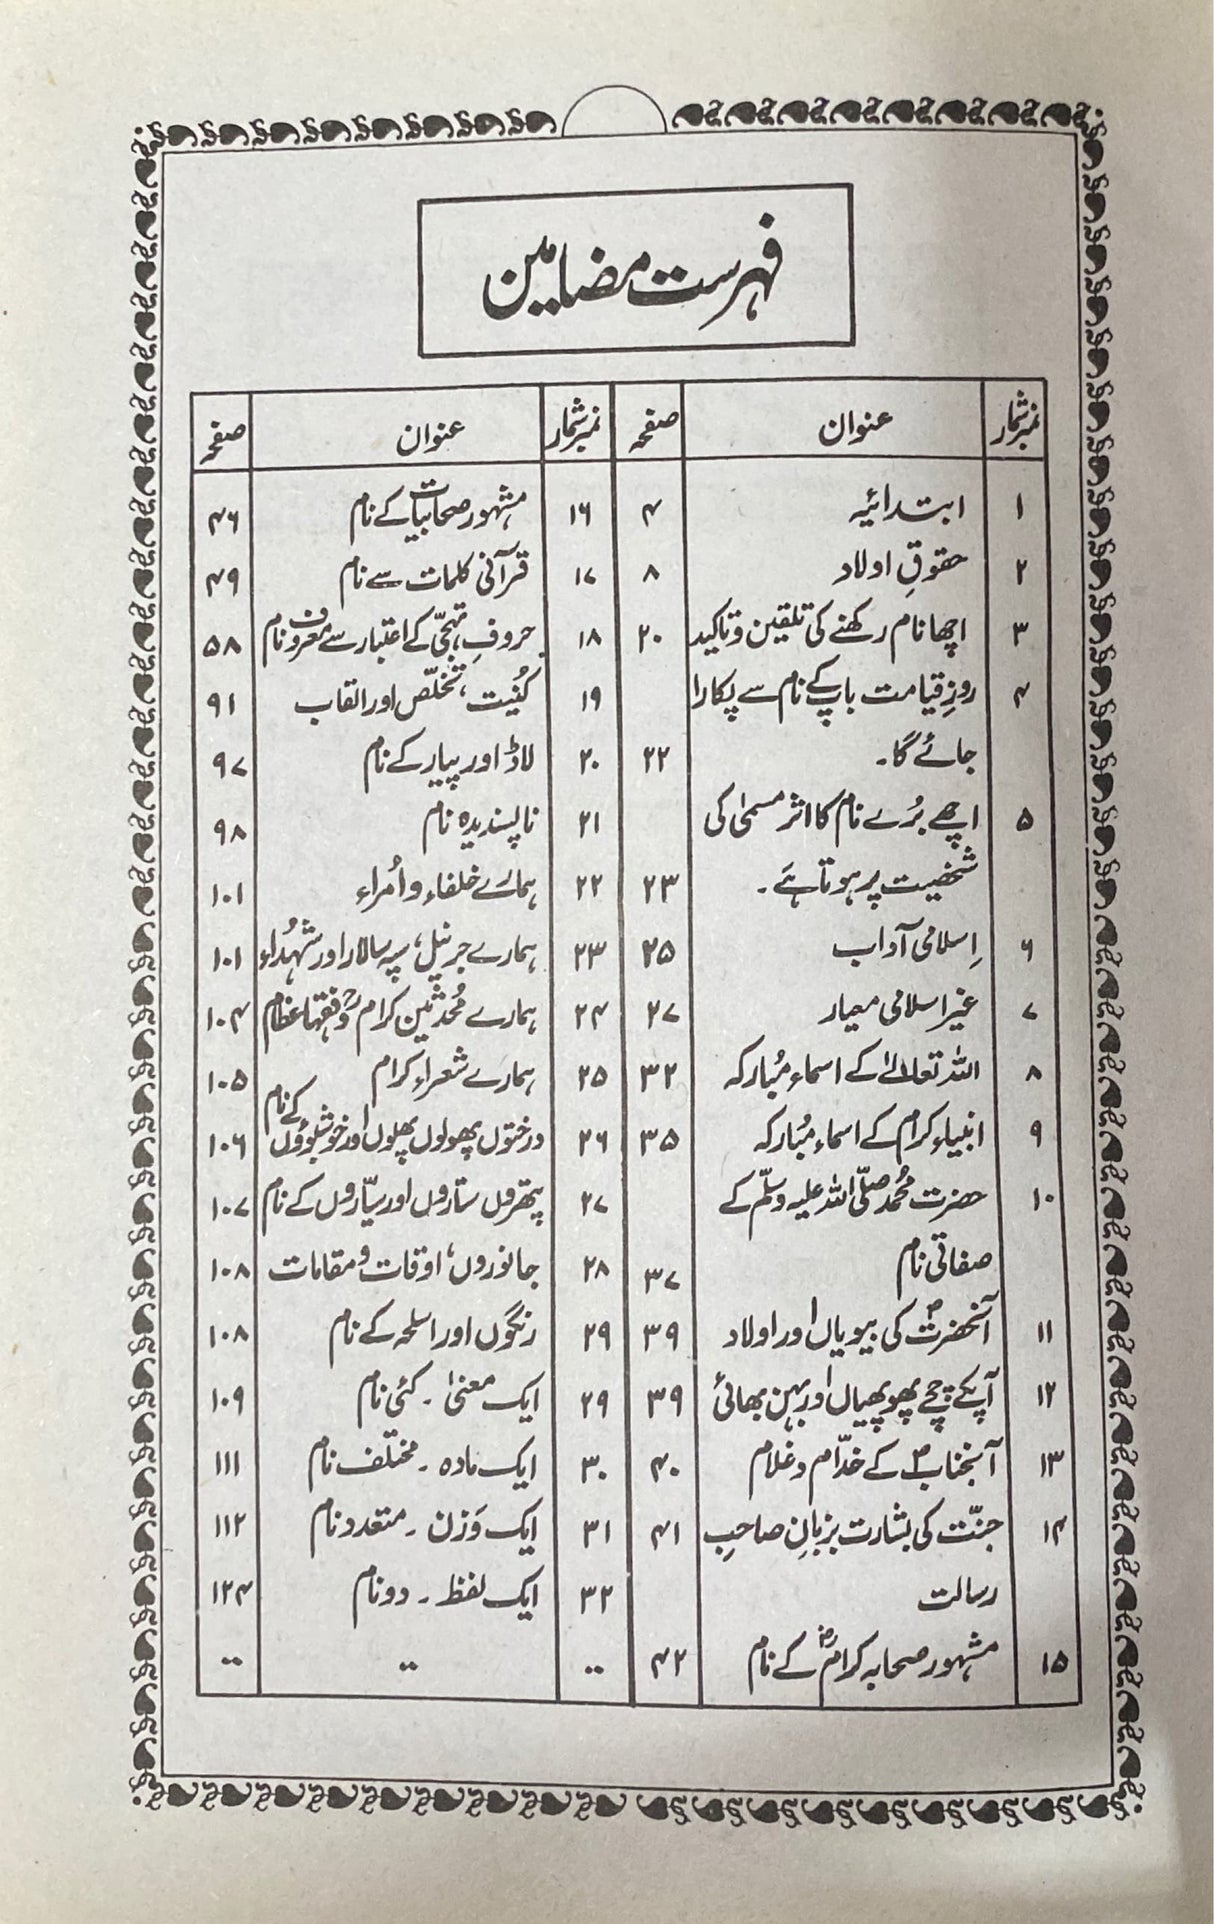 فہرست مضامین
نمبر شمار عنوان صفحہ
۱ ابتدائیہ ۴
۲ حقوقِ اولاد ۸
۳ اچھا نام رکھنے کی تلقین و تاکید ۲۰
۴ روزِ قیامت باپ کے نام سے پکارا
جائے گا۔ ۲۲
۵ اچھے بُرے نام کا اثر مسمیٰ کی
شخصیت پر ہوتا ہے۔ ۲۳
۶ اِسلامی آداب ۲۵
۷ غیر اسلامی معیار ۲۷
۸ اللہ تعالےٰ کے اسماء مُبارکہ ۳۲
۹ انبیاء کرامؑ کے اسماء مُبارکہ ۳۵
۱۰ حضرت مُحمّد صلّی اللہ علیہ وسلّم کے
صفاتی نام ۳۷
۱۱ آنحضرتؐ کی بیویاں اور اولاد ۳۹
۱۲ آپکے چچے پھوپھیاں اور بہن بھائی ۳۹
۱۳ آنجنابؐ کے خدّام و غلام ۴۰
۱۴ جنّت کی بشارت بزبانِ صاحبِ ۴۱
رسالت
۱۵ مشہور صحابہ کرامؓ کے نام ۴۲
نمبر شمار عنوان صفحہ
۱۶ مشہور صحابیات کے نام ۴۶
۱۷ قرآنی کلمات سے نام ۴۹
۱۸ حروفِ تہجّی کے اعتبار سے معروف نام ۵۸
۱۹ کُنیت، تخلّص اور القاب ۹۱
۲۰ لاڈ اور پیار کے نام ۹۷
۲۱ ناپسندیدہ نام ۹۸
۲۲ ہمارے خلفاء و اُمراء ۱۰۱
۲۳ ہمارے جرنیل، سپہ سالار اور شہُداء ۱۰۱
۲۴ ہمارے مُحدثین کرامؒ و فقہا عظام ۱۰۴
۲۵ ہمارے شعراء کرام ۱۰۵
۲۶ درختوں پھولوں پھلوں اور خوشبوؤں کے نام ۱۰۶
۲۷ پتھروں ستاروں اور سیّاروں کے نام ۱۰۷
۲۸ جانوروں، اوقات و مقامات ۱۰۸
۲۹ رنگوں اور اسلحہ کے نام ۱۰۸
۲۹ ایک معنیٰ ۔ کئی نام ۱۰۹
۳۰ ایک مادہ ۔ مختلف نام ۱۱۱
۳۱ ایک وَزن ۔ متعدد نام ۱۱۲
۳۲ ایک لفظ ۔ دو نام ۱۲۴
.. .. ..